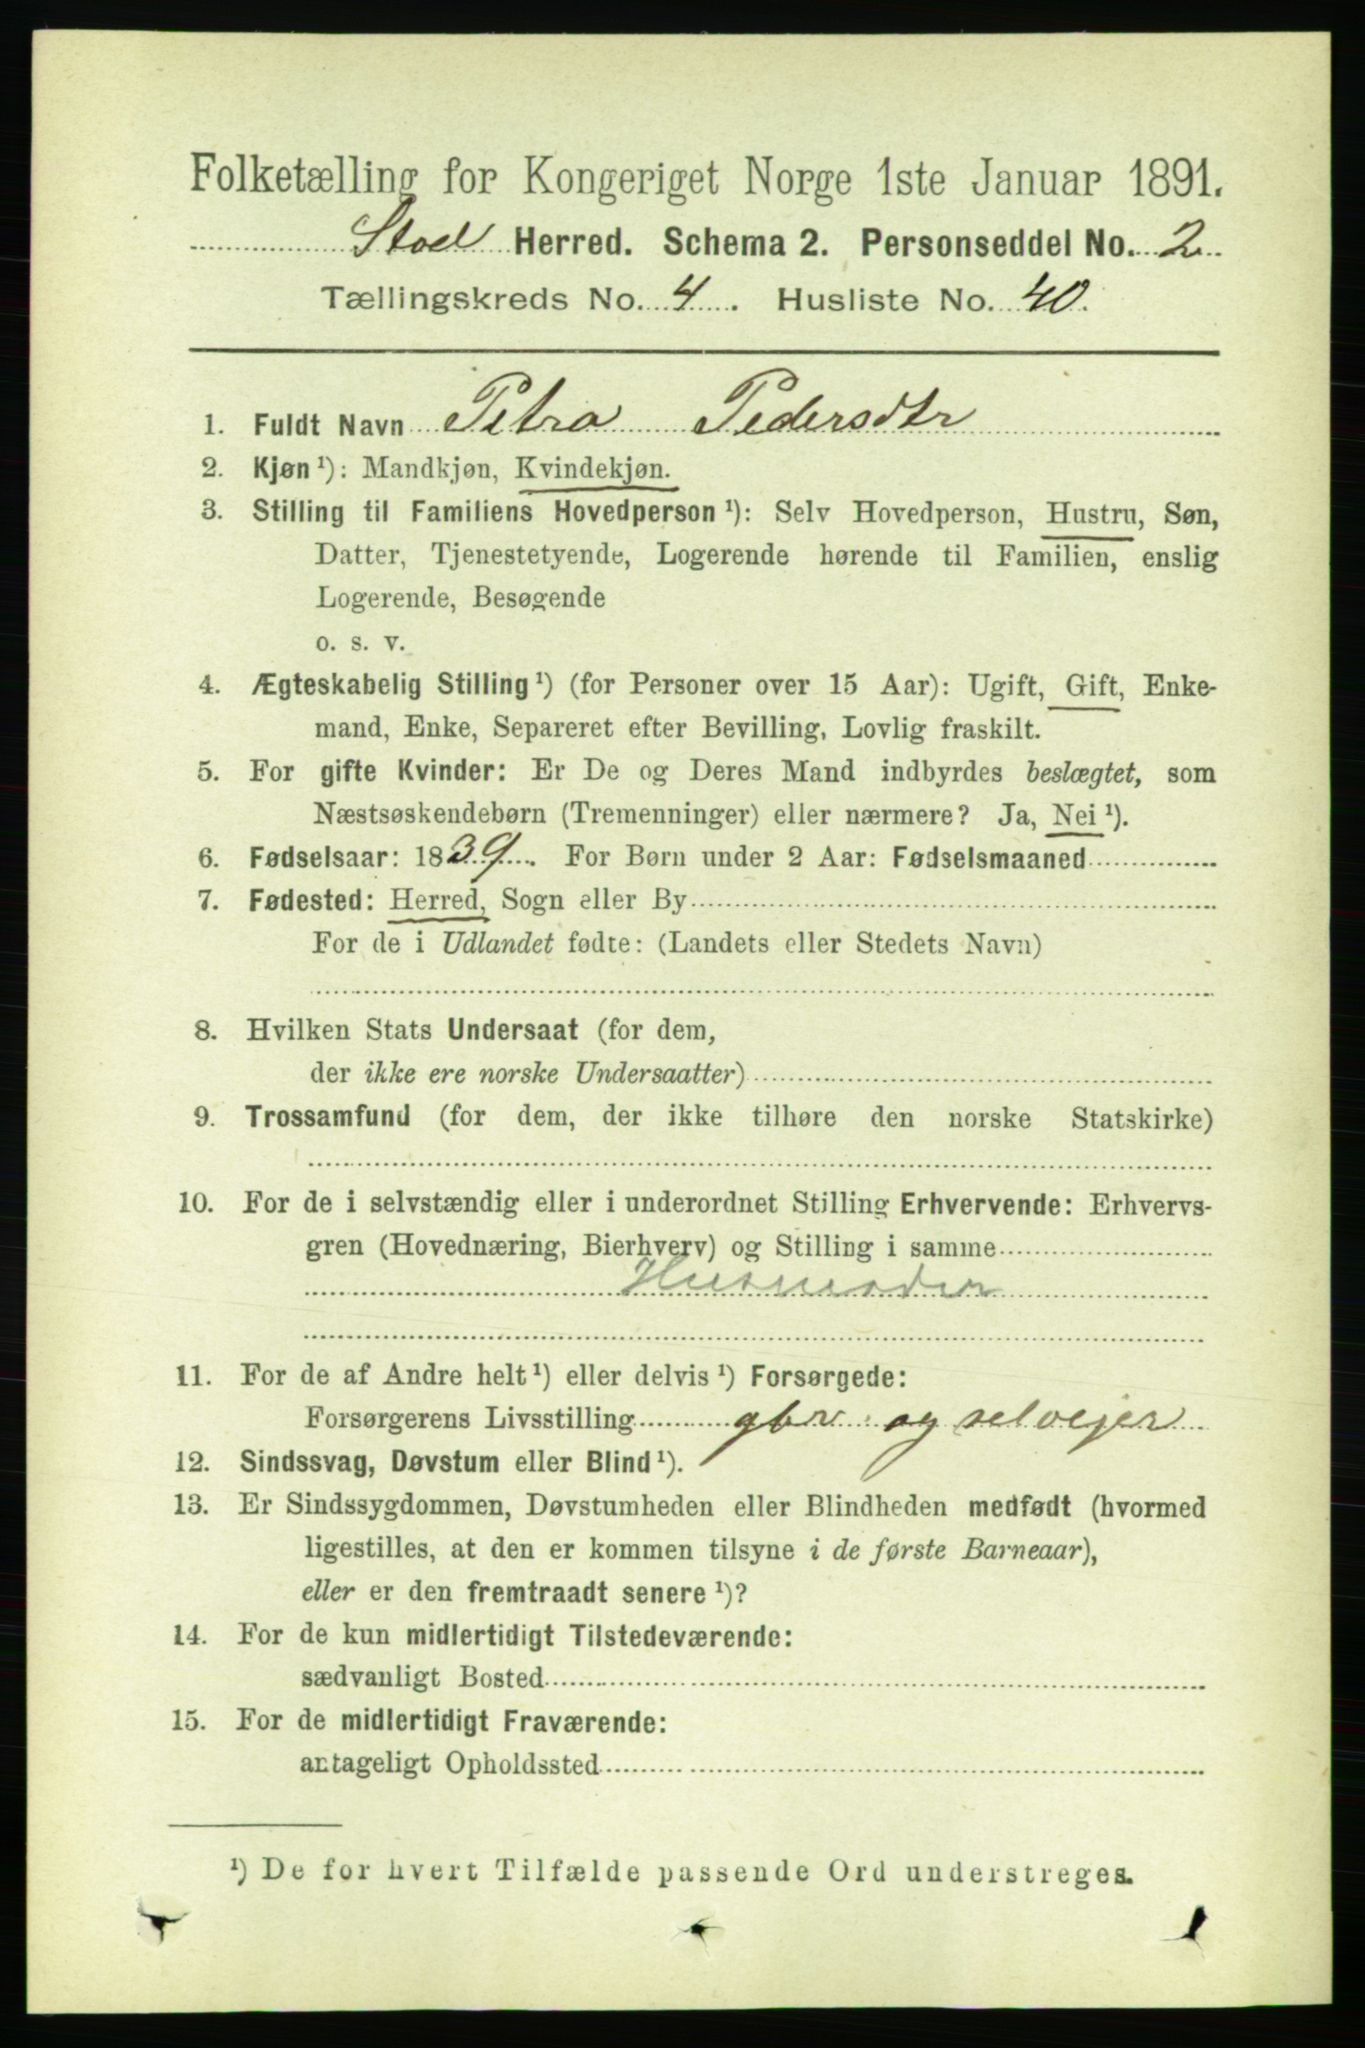 Folketælling for Kongeriget Norge 1ste Januar 1891.
Stod Herred. Schema 2. Personseddel No. 2
Tællingskreds No. 4. Husliste No. 40.
1. Fuldt Navn Petra Pedersdtr
2. Kjøn ¹): Mandkjøn, Kvindekjøn.
3. Stilling til Familiens Hovedperson ¹): Selv Hovedperson, Hustru, Søn,
Datter, Tjenestetyende, Logerende hørende til Familien, enslig
Logerende, Besøgende
o. s. v.
4. Ægteskabelig Stilling ¹) (for Personer over 15 Aar): Ugift, Gift, Enke-
mand, Enke, Separeret efter Bevilling, Lovlig fraskilt.
5. For gifte Kvinder: Er De og Deres Mand indbyrdes beslægtet, som
Næstsøskendebørn (Tremenninger) eller nærmere? Ja, Nei ¹).
6. Fødselsaar: 1839. For Børn under 2 Aar: Fødselsmaaned
7. Fødested: Herred, Sogn eller By
For de i Udlandet fødte: (Landets eller Stedets Navn)
8. Hvilken Stats Undersaat (for dem,
der ikke ere norske Undersaatter)
9. Trossamfund (for dem, der ikke tilhøre den norske Statskirke)
10. For de i selvstændig eller i underordnet Stilling Erhvervende: Erhvervs-
gren (Hovednæring, Bierhverv) og Stilling i samme
Husmoder
11. For de af Andre helt ¹) eller delvis ¹) Forsørgede:
Forsørgerens Livsstilling gbr. og selvejer
12. Sindssvag, Døvstum eller Blind ¹).
13. Er Sindssygdommen, Døvstumheden eller Blindheden medfødt (hvormed
ligestilles, at den er kommen tilsyne i de første Barneaar),
eller er den fremtraadt senere ¹)?
14. For de kun midlertidigt Tilstedeværende:
sædvanligt Bosted
15. For de midlertidigt Fraværende:
antageligt Opholdssted
¹) De for hvert Tilfælde passende Ord understreges.